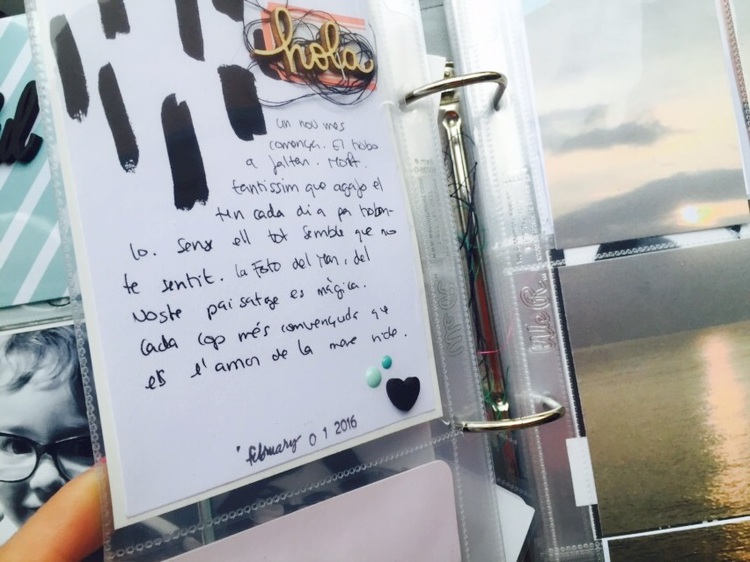 hola
Un nou mes
comença. El trobo
a faltar. Molt.
tantíssim que agafo el
tren cada dia per trobar-
lo. Sens ell tot sembla que no
te sentit. La foto del Mar, del
noste paisatge es màgica.
Cada cop més convençuda que
es l'amor de la meva vida.
february 01 2016
We R
We R